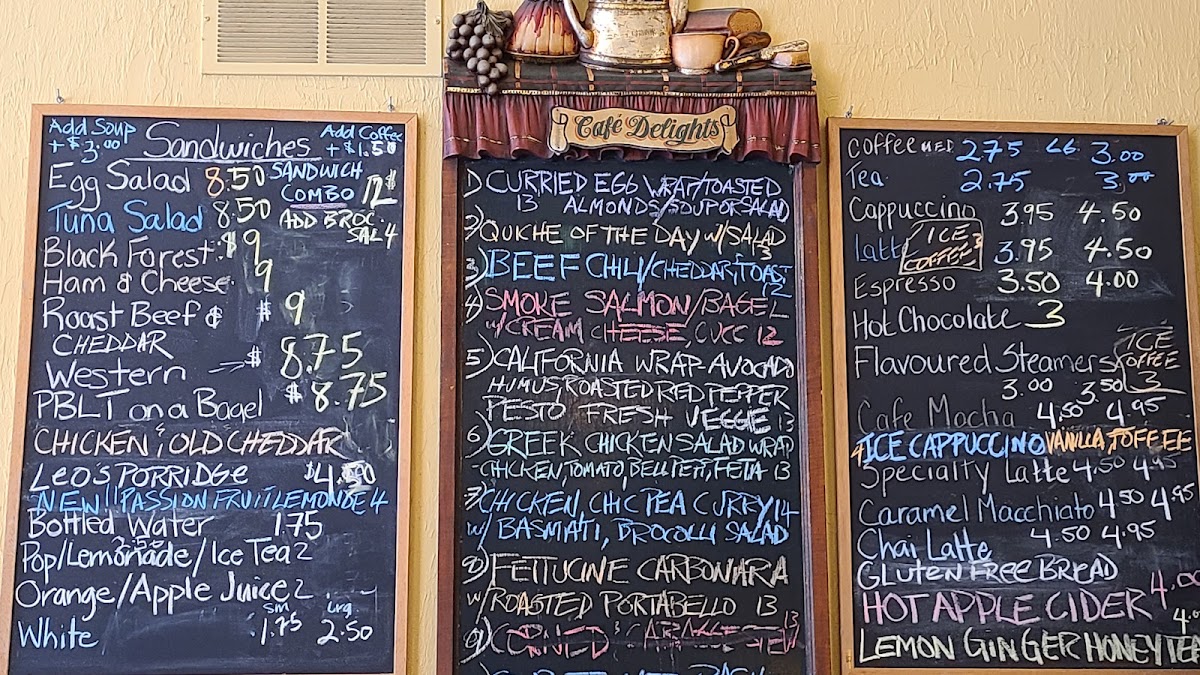 Café Delights
Add Soup
+ $3.00
Sandwiches
Add Coffee
+ $1.50
Egg Salad 8.50
SANDWICH
COMBO 12$
Tuna Salad 8.50
ADD BROC.
SAL 4
Black Forest $9
Ham & Cheese 9
Roast Beef & $9
CHEDDAR
Western → $8.75
PBLT on a Bagel $8.75
CHICKEN & OLD CHEDDAR
LEO'S PORRIDGE $4.50
NEW!! PASSION FRUIT LEMONDE 4
Bottled Water 1.75
Pop/Lemonade/Ice Tea 2
Orange/Apple Juice 2
sm Lrg
White 1.75 2.50
1) CURRIED EGG WRAP/TOASTED
13 ALMONDS/SOUP OR SALAD
2) QUICHE OF THE DAY W/SALAD
13
3) BEEF CHILI/CHEDDAR, TOAST
12
4) SMOKE SALMON/BAGEL
W/CREAM CHEESE, CUCC 12
5) CALIFORNIA WRAP-AVOCADO
HUMUS, ROASTED RED PEPPER
PESTO FRESH VEGGIE 13
6) GREEK CHICKEN SALAD WRAP
-CHICKEN, TOMATO, BELL PEPP, FETA 13
7) CHICKEN, CHIC PEA CURRY 14
W/ BASMATI, BROCOLLI SALAD
8) FETTUCINE CARBONARA
W/ROASTED PORTABELLO 13
9) CORNED
13
Coffee MED 2.75 LG 3.00
Tea 2.75 3.00
Cappuccino 3.95 4.50
Latte 3.95 4.50
ICE
COFFEE 3
Espresso 3.50 4.00
Hot Chocolate 3
Flavoured Steamers
3.00 3.50
ICE
COFFEE
3
Cafe Mocha 4.50 4.95
4 ICE CAPPUCCINO VANILLA, TOFFEE
Specialty Latte 4.50 4.95
Caramel Macchiato 4.50 4.95
Chai Latte 4.50 4.95
GLUTEN FREE BREAD
HOT APPLE CIDER 4.00
4.0
LEMON GINGER HONEY TEA